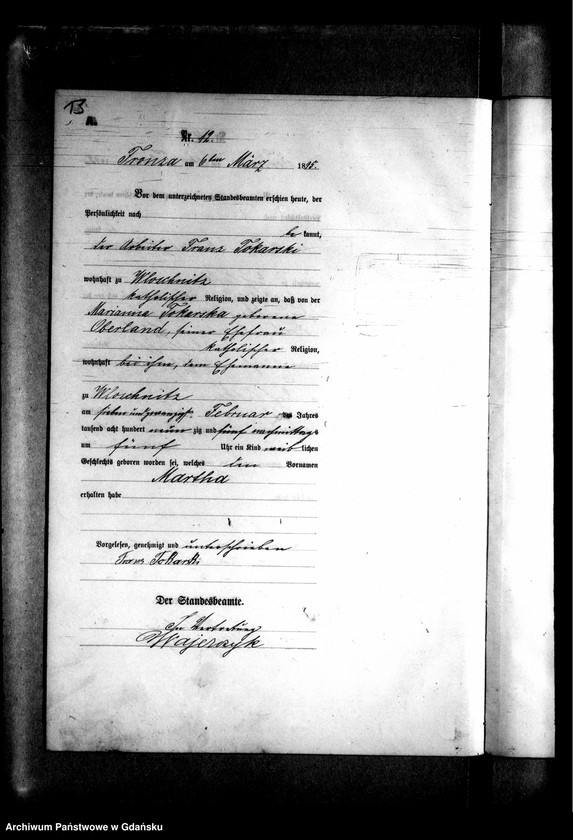 13
Nr. 12.
Fronza am 6ten März 1895.
Vor dem unterzeichneten Standesbeamten erschien heute, der
Persönlichkeit nach
be kannt,
der Arbeiter Franz Tokarski
wohnhaft zu Wloschnitz
katholischer Religion, und zeigte an, daß von der
Marianna Tokarska geborene
Oberland, seiner Ehefrau
katholischer Religion,
wohnhaft bei ihm, dem Ehemanne
zu Wloschnitz
am sieben und zwanzigst. Februar des Jahres
tausend acht hundert neun zig und fünf nachmittags
um fünf Uhr ein Kind weib lichen
Geschlechts geboren worden sei, welches den Vornamen
Martha
erhalten habe
Vorgelesen, genehmigt und unterschrieben
Franz Tokarski
Der Standesbeamte.
In Vertretung
Majerszyk
Archiwum Państwowe w Gdańsku